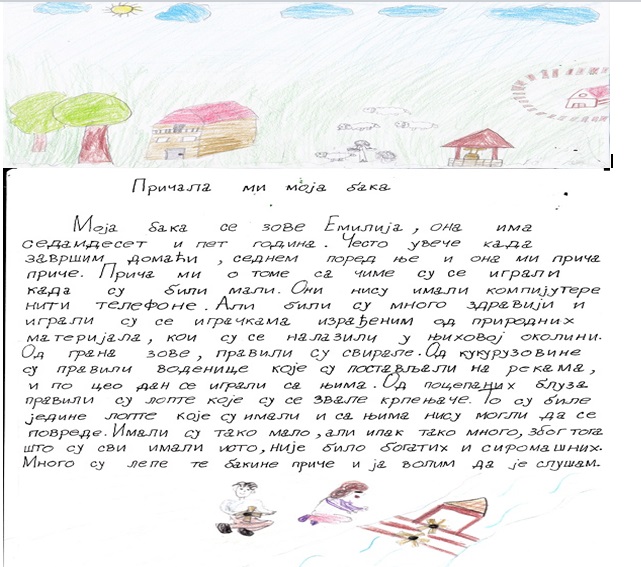 Причала ми моја бака
Моја бака се зове Емилија, она има
седамдесет и пет година. Често увече када
завршим домаћи, седнем поред ње и она ми прича
приче. Прича ми о томе са чиме су се играли
када су били мали. Они нису имали компјутере
нити телефоне. Али били су много здравији и
играли су се играчкама израђеним од природних
материјала, кои су се налазили у њиховој околини.
Од грана зове, правили су свирале. Од кукурузовине
су правили воденице које су постављали на рекама,
и по цео дан се играли са њима. Од поцепаних блуза
правили су лопте које су се звале крпењаче. То су биле
једине лопте које су имали и са њима нису могли да се
повреде. Имали су тако мало, али ипак тако много, због тога
што су сви имали исто, није било богатих и сиромашних.
Много су лепе те бакине приче и ја волим да је слушам.